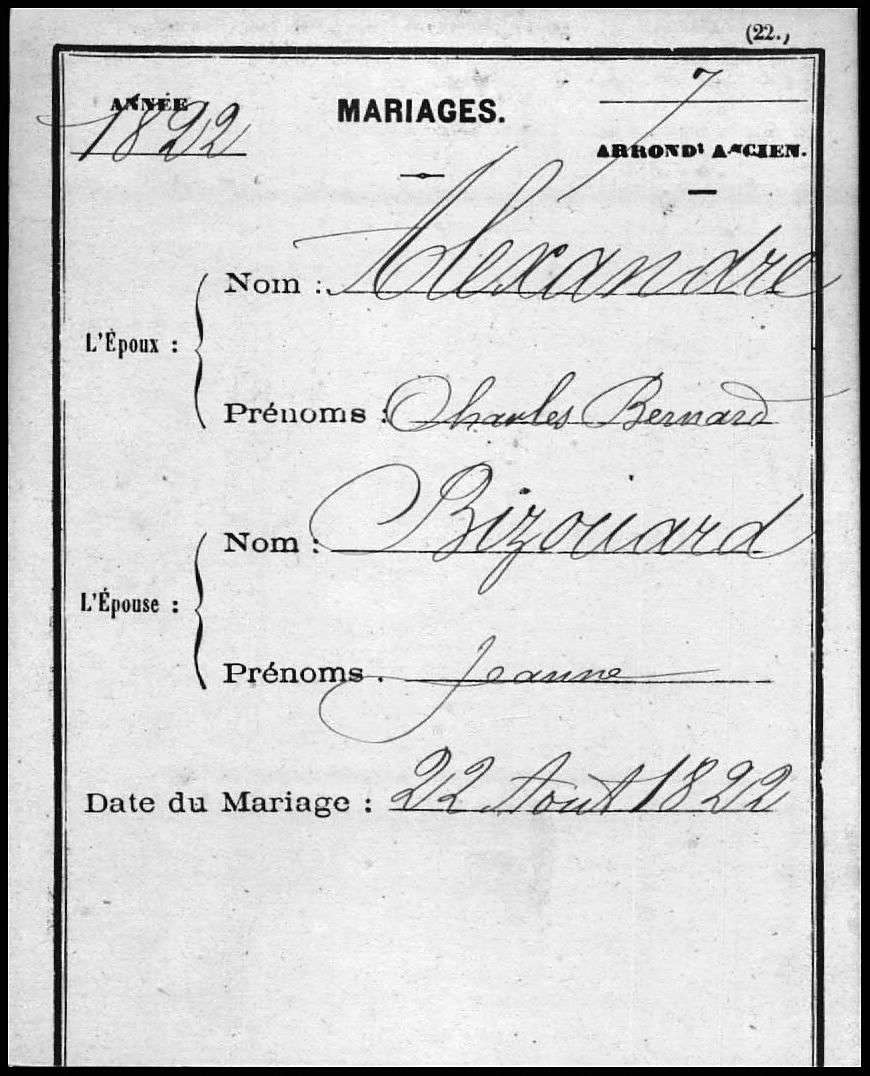 (22.)
ANNÉE 1822
MARIAGES.
7
ARRONDt ANCIEN.
L'Époux :
Nom : Alexandre
Prénoms : Charles Bernard
L'Épouse :
Nom : Bizouard
Prénoms : Jeanne
Date du Mariage : 22 Aout 1822